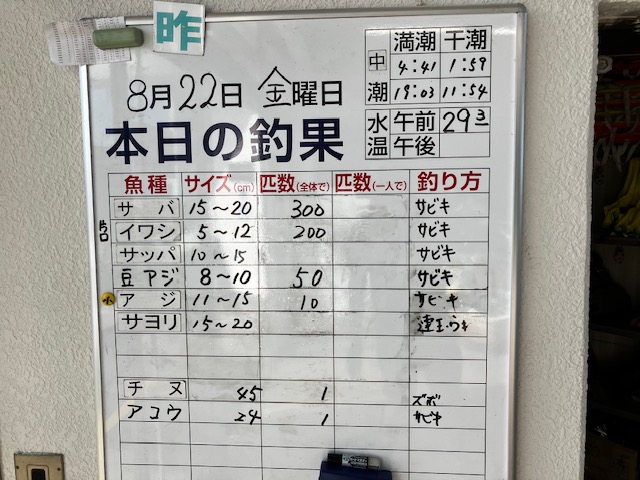 昨
8月22日 金曜日
満潮 干潮
中潮 4:41 1:59
19:03 11:54
水温 午前 29.3
午後
本日の釣果
魚種 サイズ(cm) 匹数(全体で) 匹数(一人で) 釣り方
サバ 15~20 300 サビキ
片口 イワシ 5~12 200 サビキ
サッパ 10~15 サビキ
豆アジ 8~10 50 サビキ
小 アジ 11~15 10 サビキ
サヨリ 15~20 連玉・ウキ
チヌ 45 1 ズボ
アコウ 24 1 サビキ